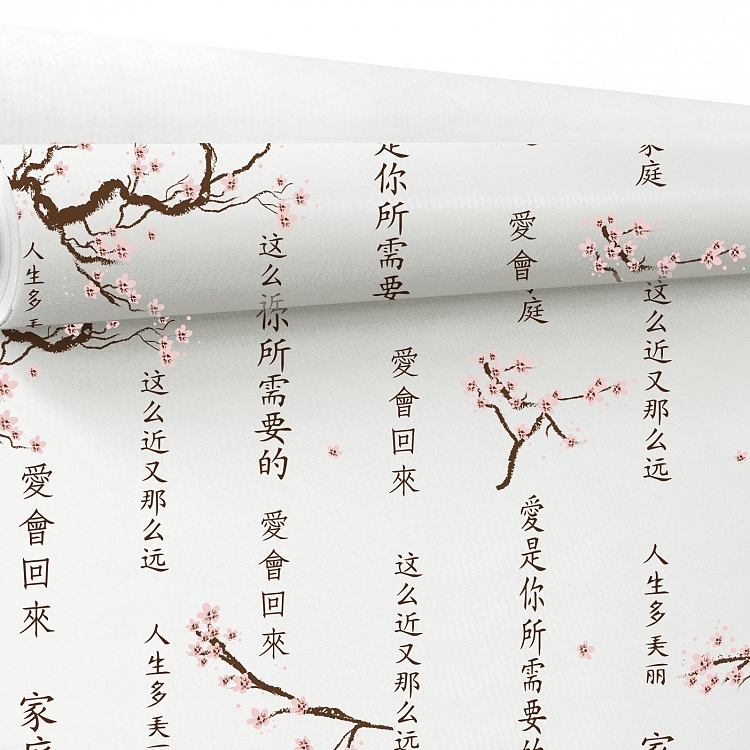 人生多
愛會回來
家
这么近又那么远
人生多美
这么
你所需要的
愛會回來
是你所需要
愛會回來
这么近又那么远
愛會
庭
愛是你所需要的
家庭
这么近又那么远
人生多美丽
家